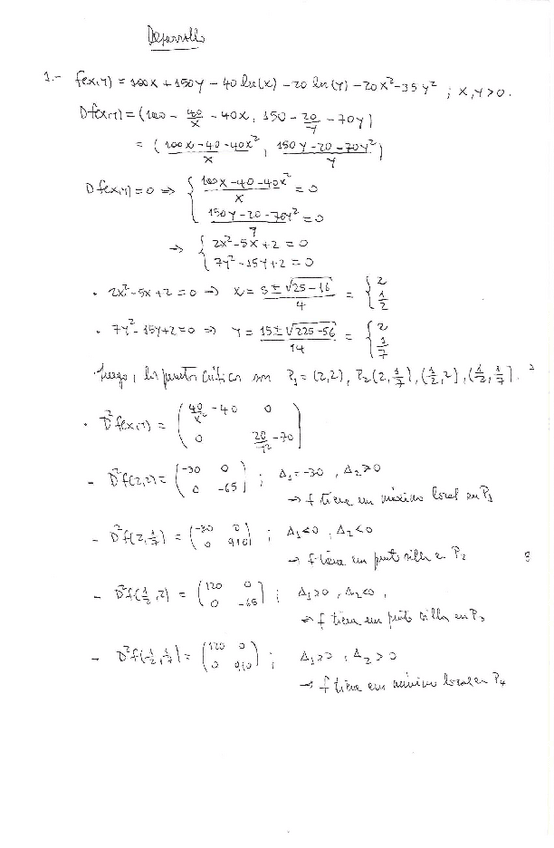 Desarrollo
1.- f(x,y) = 100x + 150y - 40 ln(x) - 20 ln(y) - 20x² - 35y² ; x,y > 0.
Df(x,y) = (100 - 40/x - 40x, 150 - 20/y - 70y)
= ( (100x - 40 - 40x²)/x , (150y - 20 - 70y²)/y )
Df(x,y) = 0 ⇒ { (100x - 40 - 40x²)/x = 0
(150y - 20 - 70y²)/y = 0
⇒ { 2x² - 5x + 2 = 0
7y² - 15y + 2 = 0
• 2x² - 5x + 2 = 0 ⇒ x = (5 ± √(25 - 16))/4 = { 2 , 1/2
• 7y² - 15y + 2 = 0 ⇒ y = (15 ± √(225 - 56))/14 = { 2 , 1/7
Luego, los puntos críticos son P₁ = (2,2), P₂(2, 1/7), (1/2, 2), (1/2, 1/7).
• D²f(x,y) = ( 40/x² - 40 0
0 20/y² - 70 )
- D²f(2,2) = ( -30 0
0 -65 ) ; Δ₁ = -30, Δ₂ > 0
→ f tiene un máximo local en P₁
- D²f(2, 1/7) = ( -30 0
0 910 ) ; Δ₁ < 0, Δ₂ < 0
→ f tiene un punto silla en P₂
- D²f(1/2, 2) = ( 120 0
0 -65 ) ; Δ₁ > 0, Δ₂ < 0,
→ f tiene un punto silla en P₃
- D²f(1/2, 1/7) = ( 120 0
0 910 ) ; Δ₁ > 0, Δ₂ > 0
→ f tiene un mínimo local en P₄